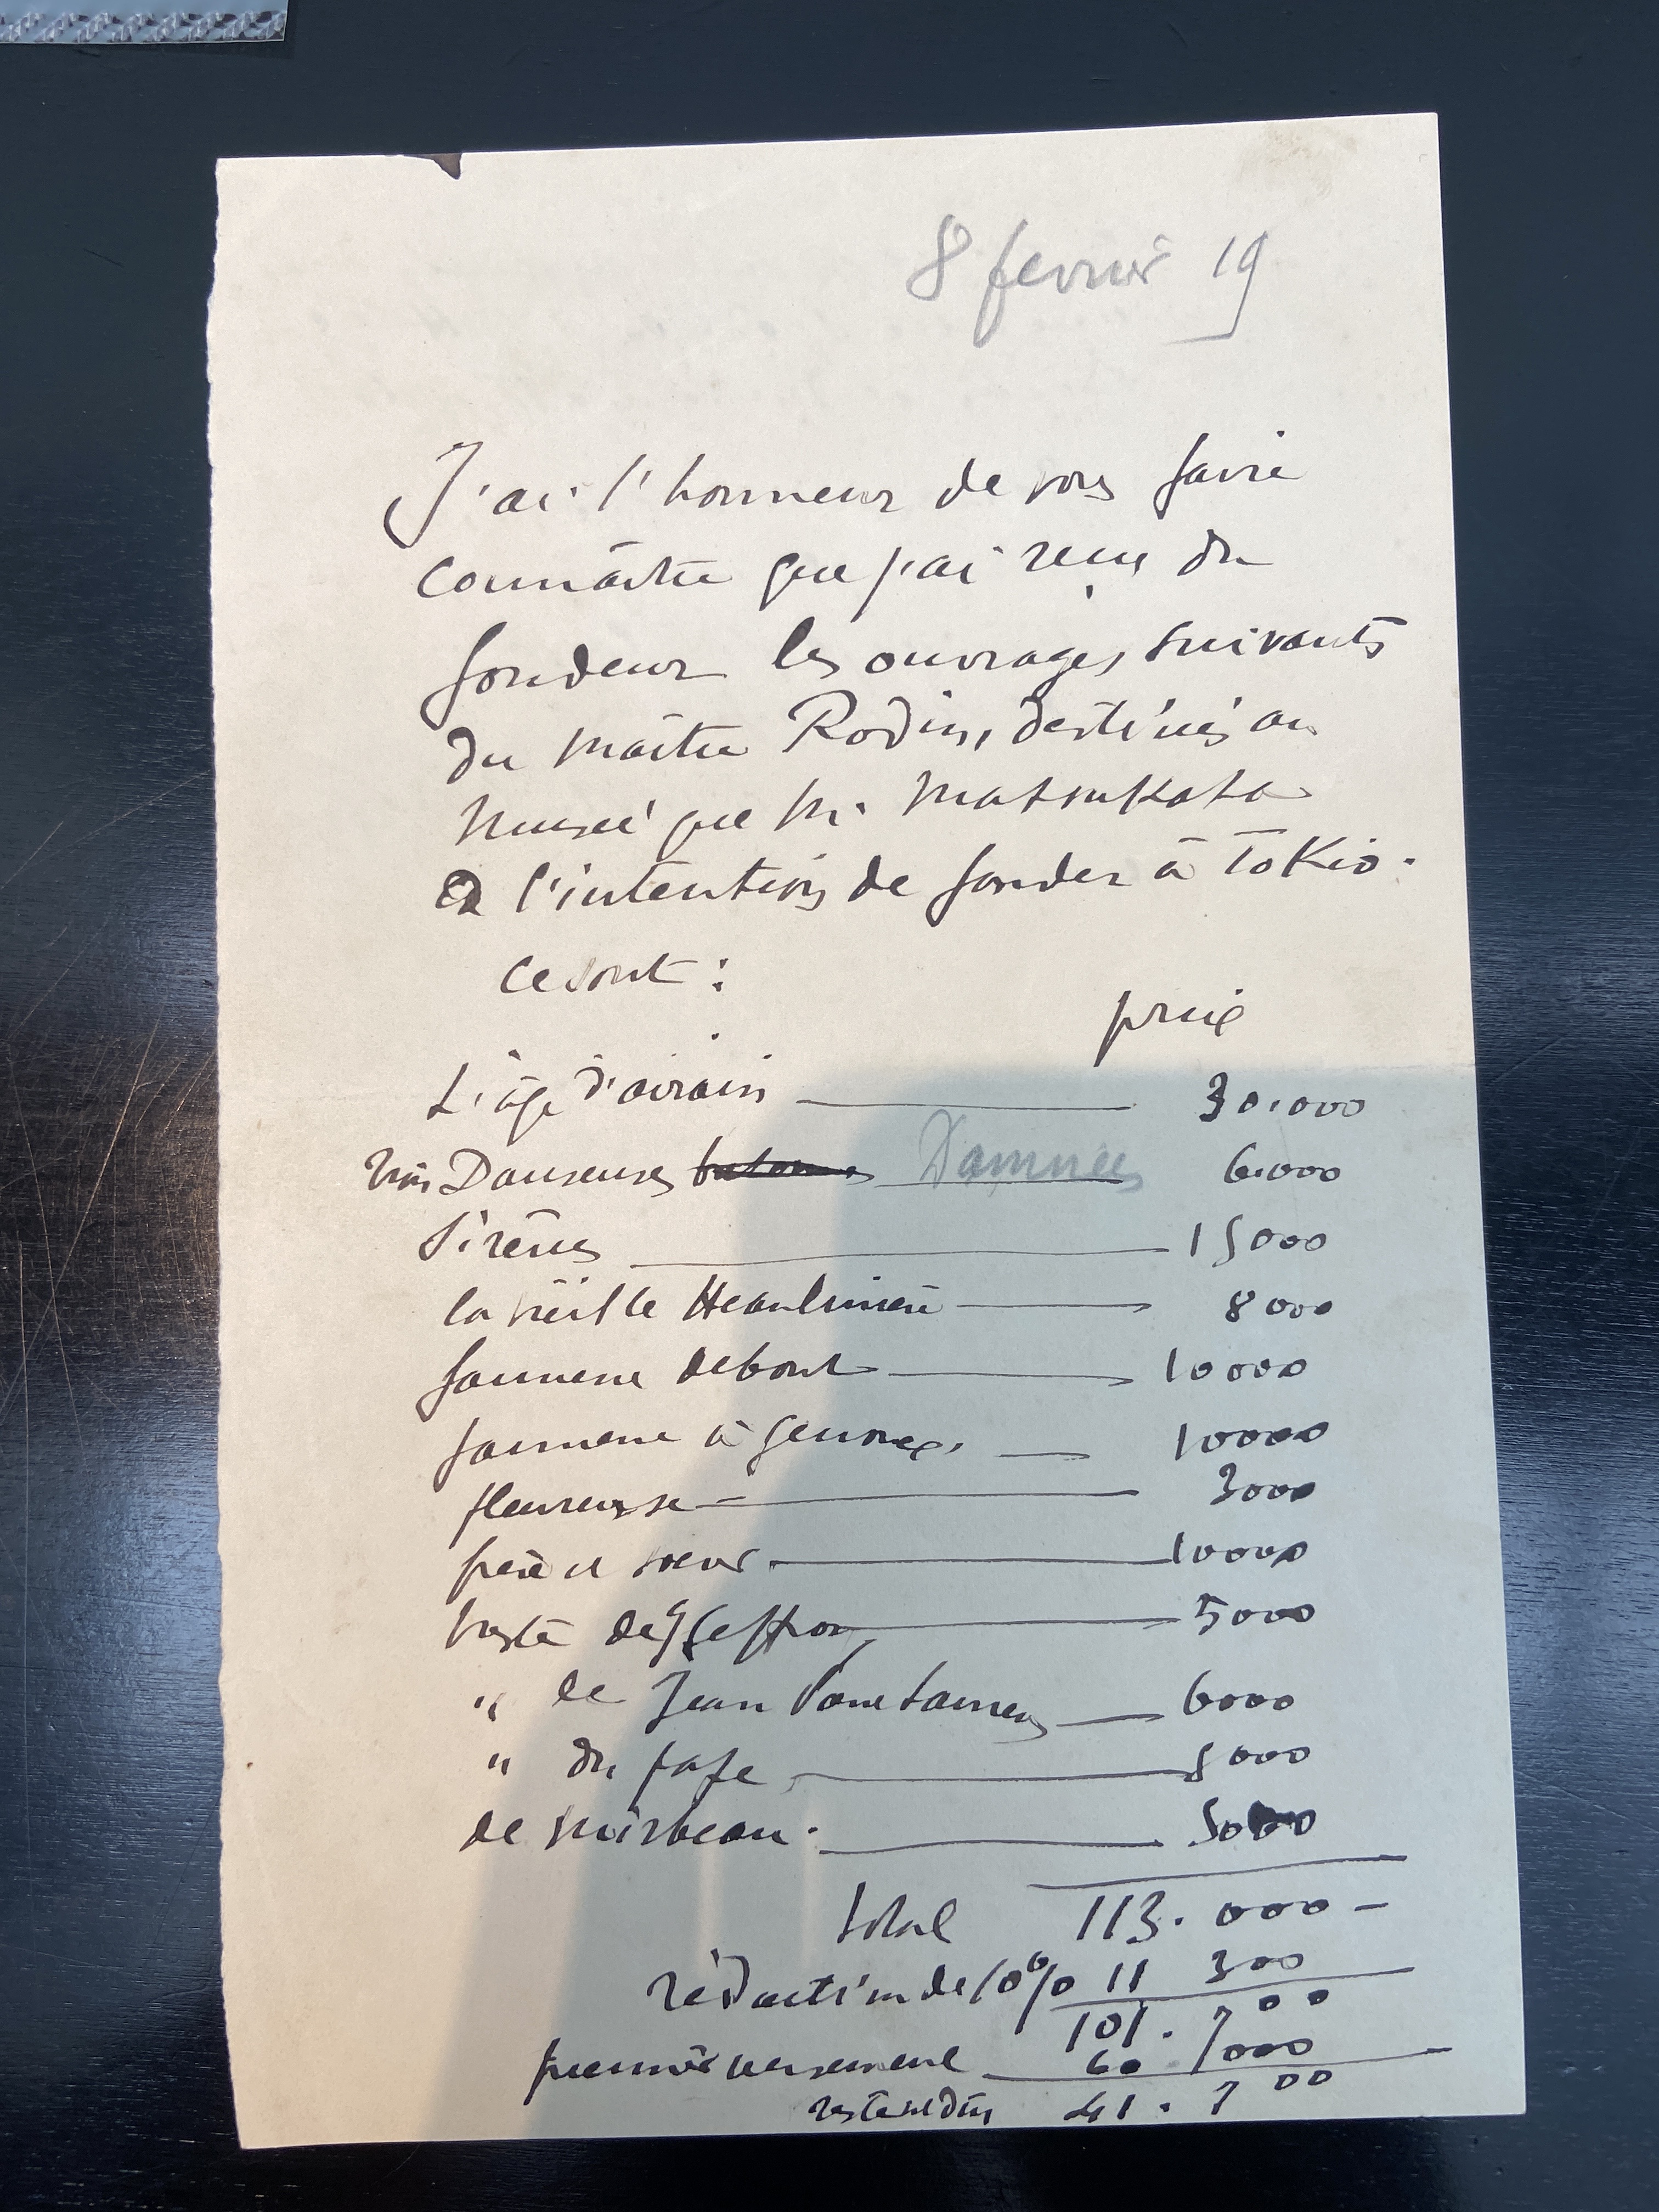 8 fevrier 19
J'ai l'honneur de vous faire
connaître que j'ai reçu du
fondeur les ouvrages suivants
du maître Rodin, destinés au
musée que M. Matsukata
a l'intention de fonder à Tokio.
ce sont :
prix
L'âge d'airain 30.000
trois Danseuses Damnées 6.000
Sirènes 15000
la vieille Heaulmière 8000
faunesse debout 10000
faunesse à genoux. 10000
pleureuse 3000
frère et soeur 10000
buste de G Geffroy 5000
" de Jean Paul Laurens 6000
" du pape 5000
de Mirbeau. 5000
total 113.000 -
réduction de 10% 11 300
101.700
premier versement 60 000
reste dû 41.700